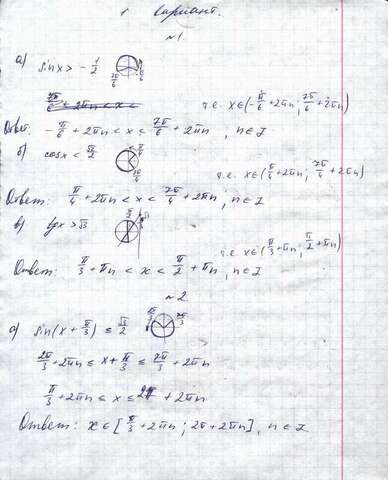 1 вариант.
№1
а) sin x > -1/2
7π/6 π/6
т.е. x∈(-π/6+2πn; 7π/6+2πn)
Ответ: -π/6+2πn < x < 7π/6+2πn, n∈Z
б) cos x < √2/2
π/4 7π/4
т.е. x∈(π/4+2πn; 7π/4+2πn)
Ответ: π/4+2πn < x < 7π/4+2πn, n∈Z
в) tg x > √3
т.е. x∈(π/3+πn; π/2+πn)
Ответ: π/3+πn < x < π/2+πn, n∈Z
№2
а) sin(x+π/3) ≤ √3/2
2π/3 7π/3
2π/3+2πn ≤ x+π/3 ≤ 7π/3+2πn
π/3+2πn ≤ x ≤ 2π+2πn
Ответ: x∈[π/3+2πn; 2π+2πn], n∈Z